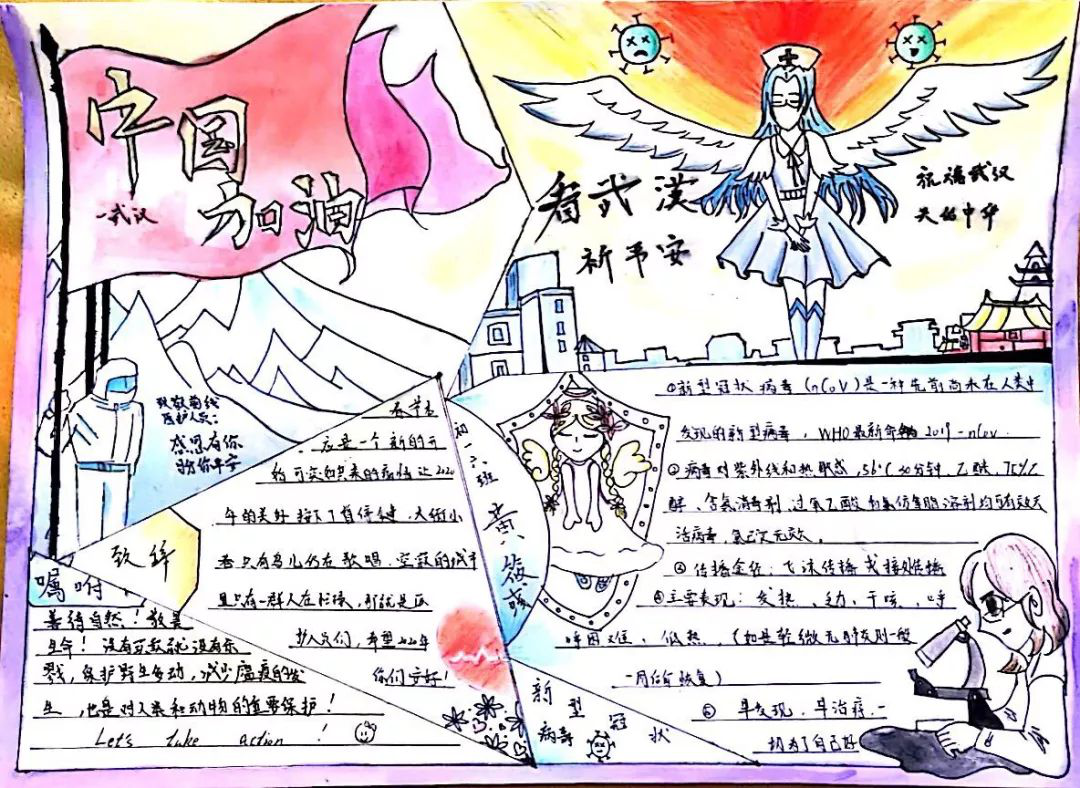 中国
加油
武汉
看武漢
祈平安
祝福武汉
天佑中华
致敬前线
医护人员:
感恩有你
盼你平安
初一六班
致辞
春学者
应是一个新的开
始 可突如其来的疫情让2020
年的美好 按下了暂停键. 大街小
巷只有鸟儿仍在歌唱. 空寂的城市
里只有一群人在忙碌, 那就是医
护人员们, 希望2020年
你们安好!
嘱咐
善待自然! 敬畏
生命! 没有买卖就没有杀
戮, 保护野生动物, 减少瘟疫的发
生, 也是对人类和动物的重要保护!
Let's take action !
①新型冠状病毒(nCoV)是一种先前尚未在人类中
发现的新型病毒, WHO最新命名 2019-nCoV.
②病毒对紫外线和热敏感, 56℃ 30分钟、乙醚、75%乙
醇、含氯消毒剂、过氧乙酸和氯仿等脂溶剂均可有效灭
活病毒, 氯己定无效.
传播途径: 飞沫传播 或接触传播
主要表现: 发热、乏力、干咳、呼
吸困难、低热、(如是轻微无肺炎则一般
一周后恢复)
⑤ 早发现、早治疗、一
切为了自己好
新型冠状
病毒